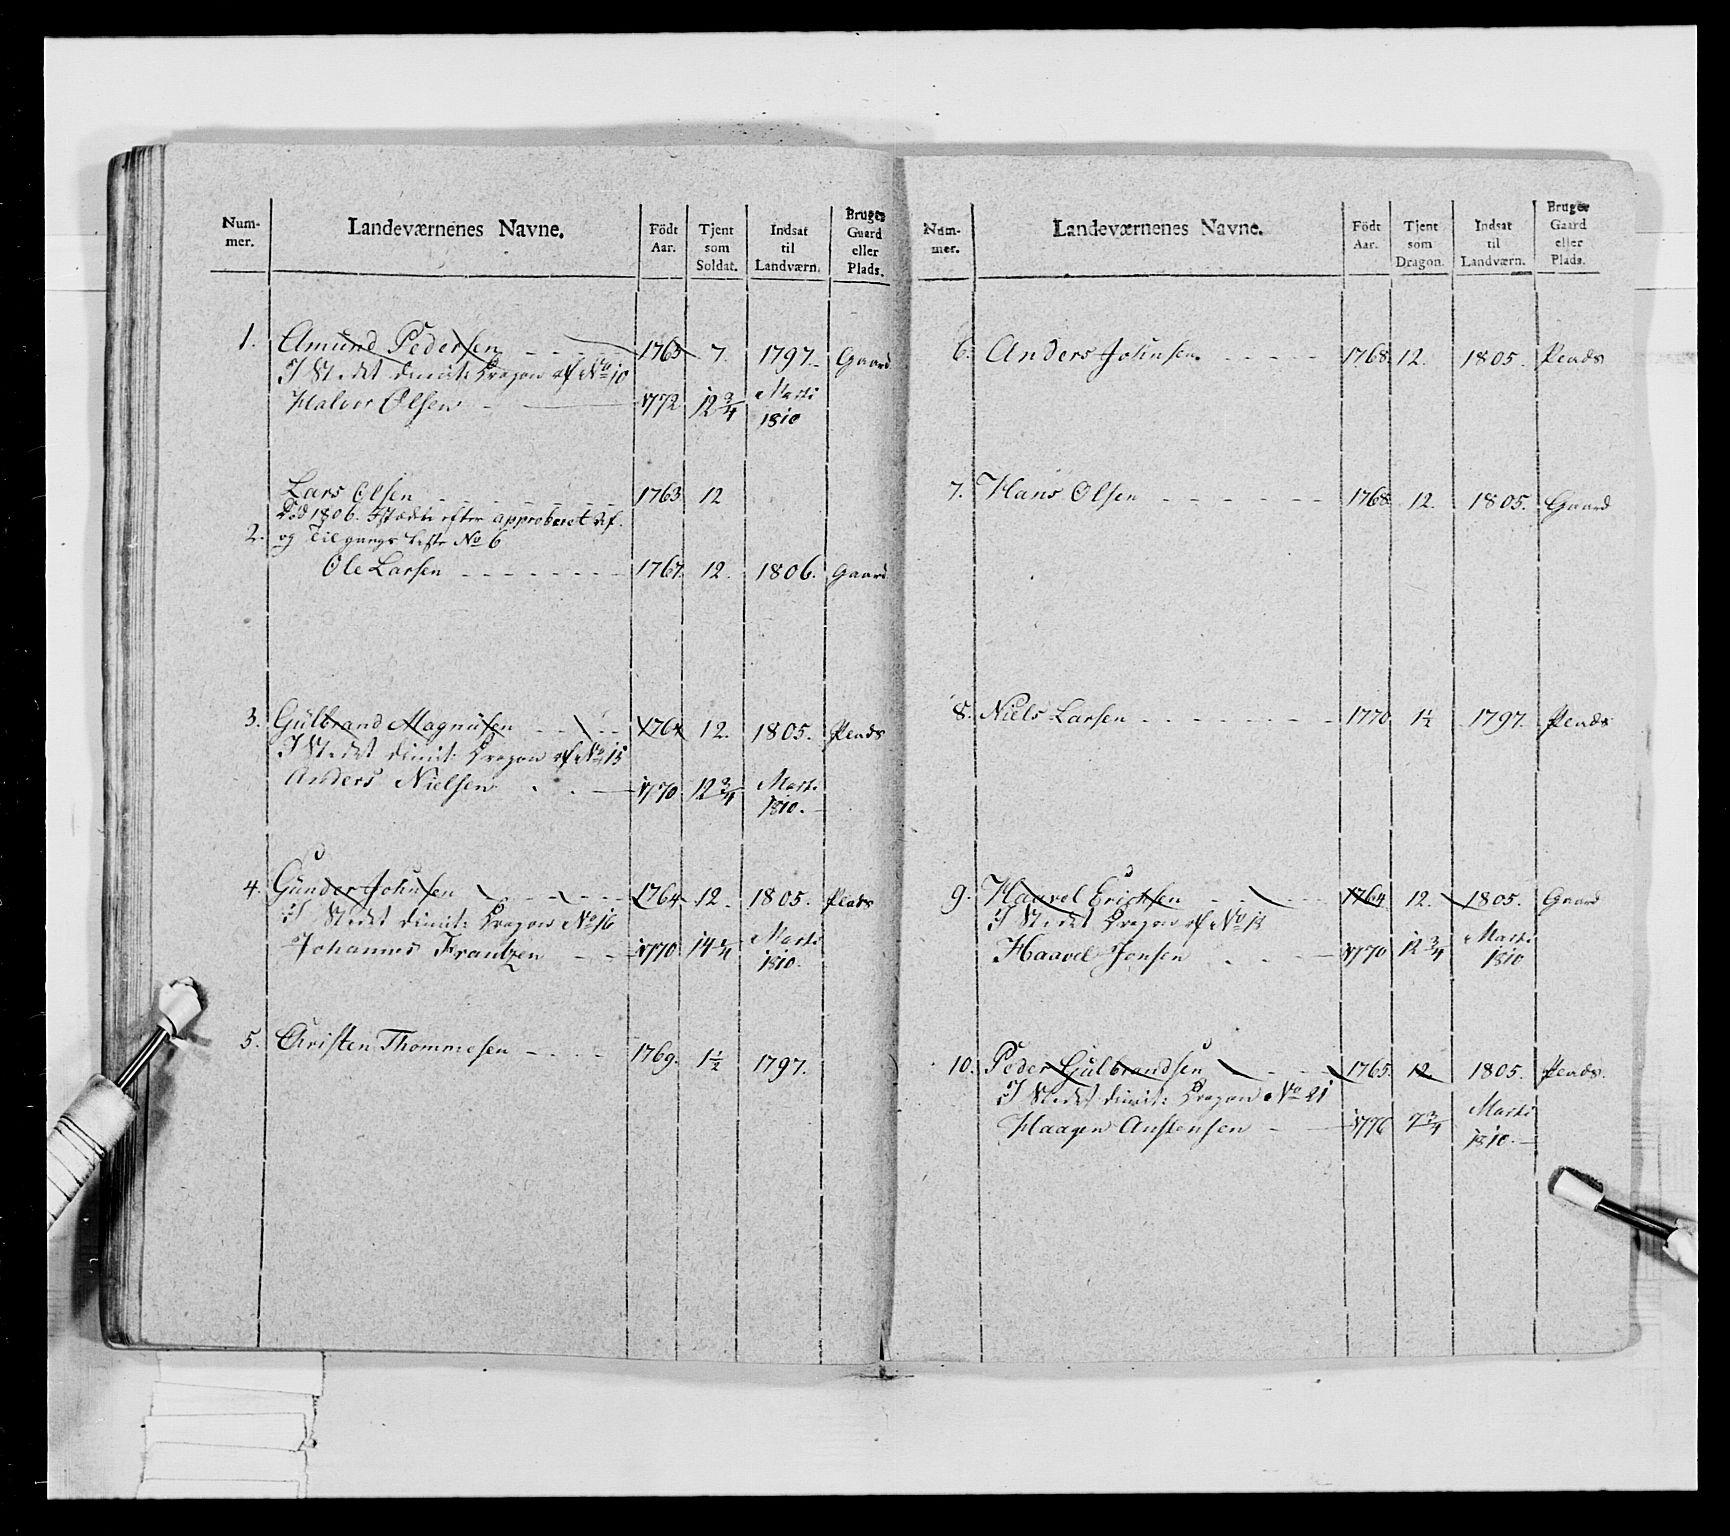 Num-
mer.
Landeværnenes Navne.
Födt
Aar.
Tjent
som
Soldat.
Indsat
til
Landværn.
Bruger
Gaard
eller
Plads.
1. Amund Pedersen 1765 7. 1797. Gaard
I Stedet dimit: Dragon af No 10
Halvor Olsen 1772 12 3/4 Marti 1810
Lars Olsen 1763 12
Död 1806. Istæden efter approberet Af.
2. og Tilgangs Liste No 6
Ole Larsen 1767. 12. 1806. Gaard
3. Gulbrand Magnusen 1764 12. 1805. Plads
I Stedet dimit: Dragon af No 15
Anders Nielsen 1770 12 3/4 Marti 1810.
4. Gunder Johnsen 1764 12. 1805. Plads
I Stedet dimit: Dragon No 16
Johannes Frantzen 1770 14 3/4 Marti 1810.
5. Christen Thommesen 1769. 1 1/2 1797.
Num-
mer.
Landeværnenes Navne.
Födt
Aar.
Tjent
som
Dragon.
Indsat
til
Landværn.
Bruger
Gaard
eller
Plads.
6. Anders Johnsen 1768. 12. 1805. Plads
7. Hans Olsen 1768 12. 1805. Gaard
8. Niels Larsen 1770 1 1/2 1797. Plads
9. Haavel Ericksen 1764 12. 1805. Gaard
I Stedet Dragon af No
Haavel Jonsen 1770 12 3/4 Marti 1810
10. Peder Gulbrandsen 1765. 12. 1805. Plads.
I Stedet dimit: Dragon No 21
Haagen Anstensen 1776 7 3/4 Marti 1810.